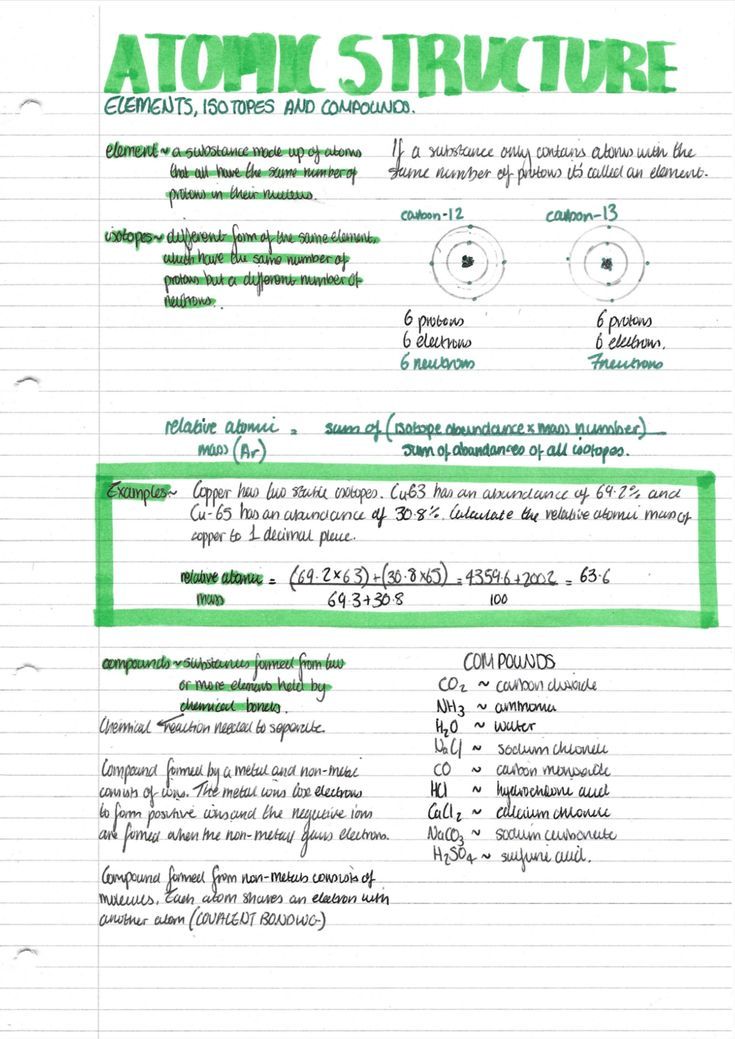 ATOMIC STRUCTURE
ELEMENTS, ISOTOPES AND COMPOUNDS.
element ~ a substance made up of atoms
that all have the same number of
protons in their nucleus.
If a substance only contains atoms with the
same number of protons it's called an element.
isotopes ~ different form of the same element,
which have the same number of
protons but a different number of
neutrons.
carbon-12
carbon-13
6 protons
6 electrons
6 neutrons
6 protons
6 electrons.
7 neutrons
relative atomic = sum of (isotope abundance × mass number)
mass (Ar) sum of abundances of all isotopes.
Examples ~ Copper has two stable isotopes. Cu-63 has an abundance of 69.2% and
Cu-65 has an abundance of 30.8%. Calculate the relative atomic mass of
copper to 1 decimal place.
relative atomic = (69.2×63)+(30.8×65) = 4359.6+2002 = 63.6
mass 69.3+30.8 100
compounds ~ substances formed from two
or more element held by
chemical bonds.
Chemical reaction needed to separate.
Compound formed by a metal and non-metal
consists of ions. The metal ions lose electrons
to form positive ions and the negative ions
are formed when the non-metals gains electrons.
Compound formed from non-metals consists of
molecules. Each atom shares an electron with
another atom (COVALENT BONDING)
COMPOUNDS
CO₂ ~ carbon dioxide
NH₃ ~ ammonia
H₂O ~ water
NaCl ~ sodium chloride
CO ~ carbon monoxide
HCl ~ hydrochloric acid
CaCl₂ ~ calcium chloride
NaCO₃ ~ sodium carbonate
H₂SO₄ ~ sulfuric acid.